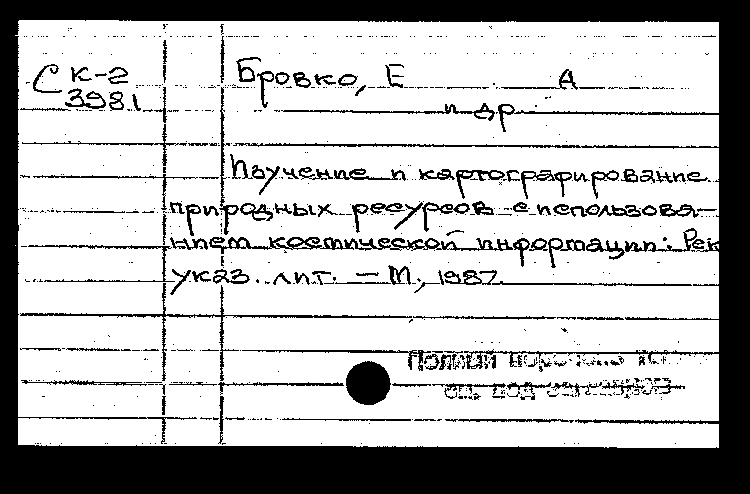 С К-2
3981
Бровко, Е А
и др.
Изучение и картографирование
природных ресурсов с использова-
нием космической информации: Рек
указ. лит. – М., 1987.
Полный
см. под